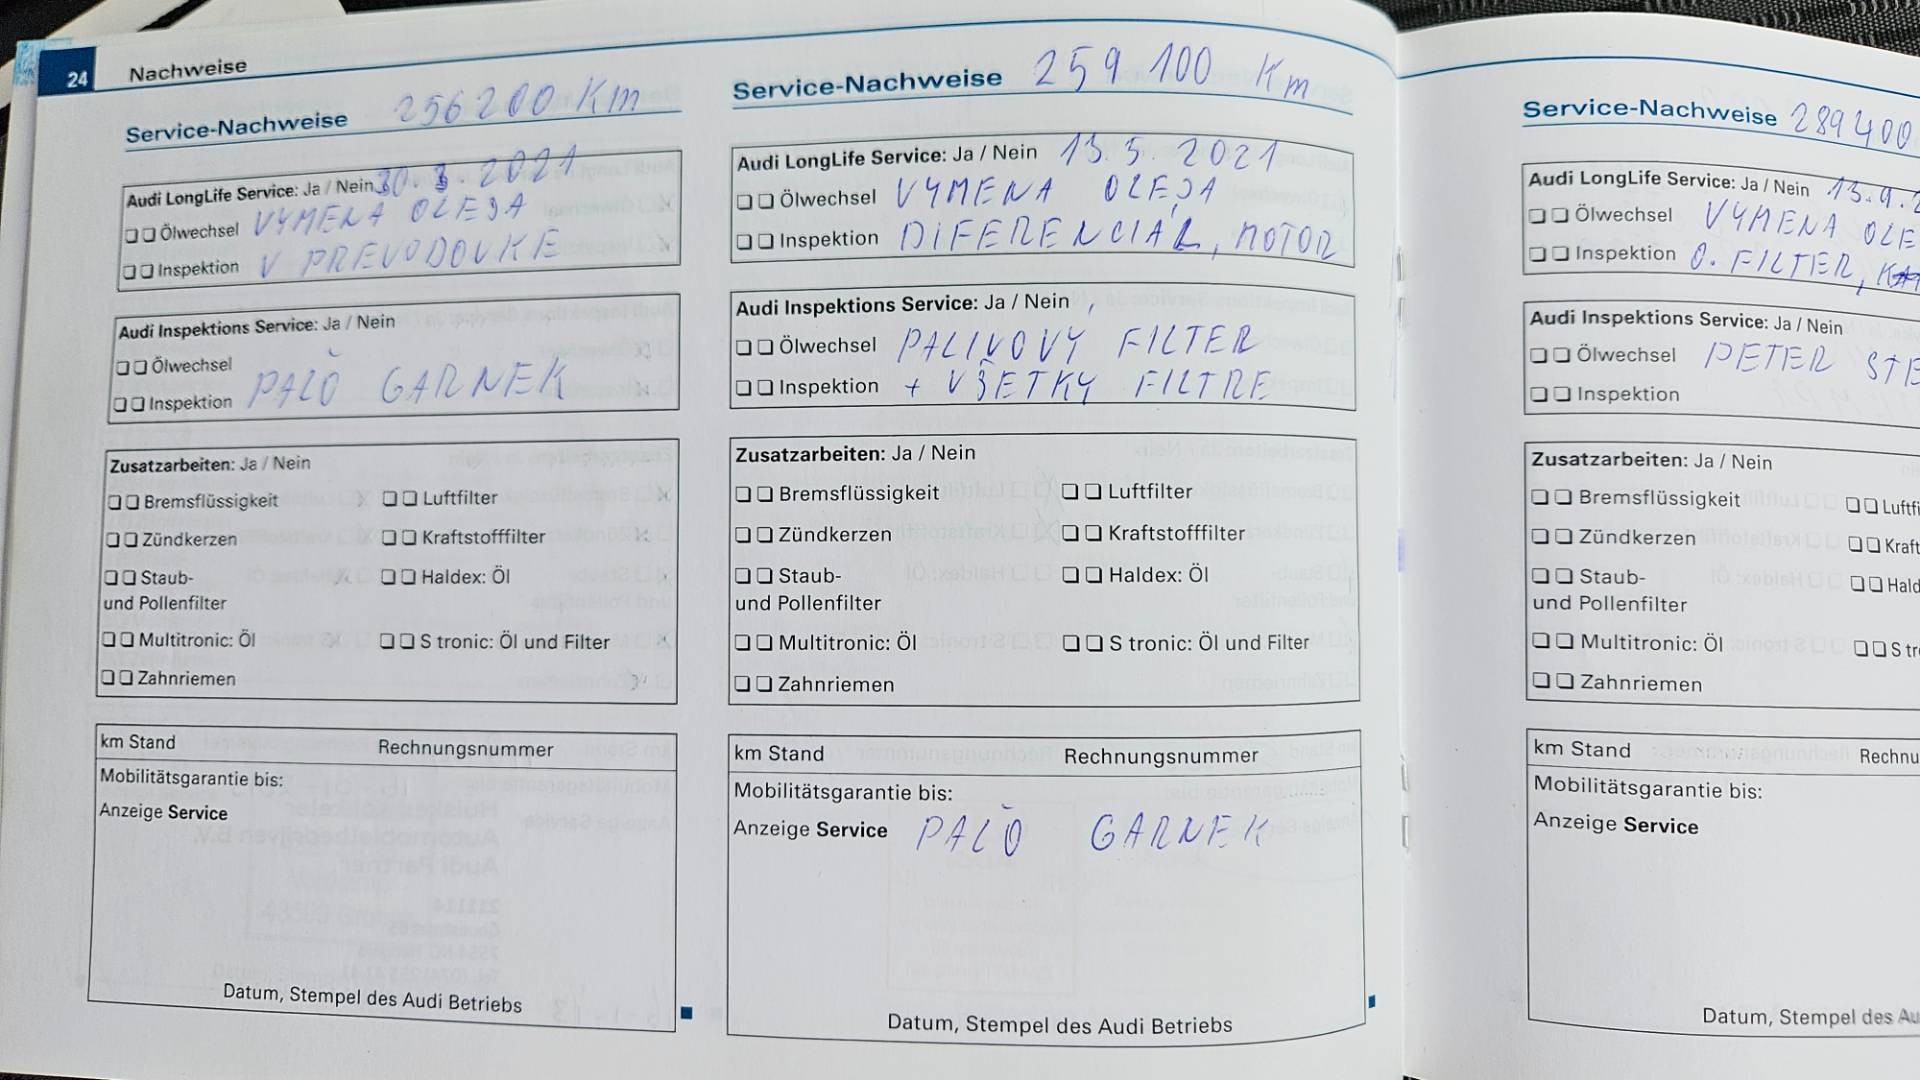 24 Nachweise
Service-Nachweise 256200 Km
Audi LongLife Service: Ja / Nein 30.3.2021
❏ ❏ Ölwechsel VYMENA OLEJA
❏ ❏ Inspektion V PREVODOVKE
Audi Inspektions Service: Ja / Nein
❏ ❏ Ölwechsel
❏ ❏ Inspektion PALŎ GARNEK
Zusatzarbeiten: Ja / Nein
❏ ❏ Bremsflüssigkeit ❏ ❏ Luftfilter
❏ ❏ Zündkerzen ❏ ❏ Kraftstofffilter
❏ ❏ Staub- ❏ ❏ Haldex: Öl
und Pollenfilter
❏ ❏ Multitronic: Öl ❏ ❏ S tronic: Öl und Filter
❏ ❏ Zahnriemen
km Stand Rechnungsnummer
Mobilitätsgarantie bis:
Anzeige Service
Datum, Stempel des Audi Betriebs
Service-Nachweise 259 100 Km
Audi LongLife Service: Ja / Nein 13.5.2021
❏ ❏ Ölwechsel VYMENA OLEJA
❏ ❏ Inspektion DIFERENCIÁL, MOTOR
Audi Inspektions Service: Ja / Nein
❏ ❏ Ölwechsel PALIVOVÝ FILTER
❏ ❏ Inspektion + VŠETKY FILTRE
Zusatzarbeiten: Ja / Nein
❏ ❏ Bremsflüssigkeit ❏ ❏ Luftfilter
❏ ❏ Zündkerzen ❏ ❏ Kraftstofffilter
❏ ❏ Staub- ❏ ❏ Haldex: Öl
und Pollenfilter
❏ ❏ Multitronic: Öl ❏ ❏ S tronic: Öl und Filter
❏ ❏ Zahnriemen
km Stand Rechnungsnummer
Mobilitätsgarantie bis:
Anzeige Service PALŎ GARNEK
Datum, Stempel des Audi Betriebs
Service-Nachweise 289400
Audi LongLife Service: Ja / Nein 13.9.2
❏ ❏ Ölwechsel VYMENA OLE
❏ ❏ Inspektion O. FILTER,
Audi Inspektions Service: Ja / Nein
❏ ❏ Ölwechsel PETER STE
❏ ❏ Inspektion
Zusatzarbeiten: Ja / Nein
❏ ❏ Bremsflüssigkeit ❏ ❏ Luftfi
❏ ❏ Zündkerzen ❏ ❏ Kraft
❏ ❏ Staub- ❏ ❏ Hald
und Pollenfilter
❏ ❏ Multitronic: Öl ❏ ❏ S tr
❏ ❏ Zahnriemen
km Stand Rechnu
Mobilitätsgarantie bis:
Anzeige Service
Datum, Stempel des Au